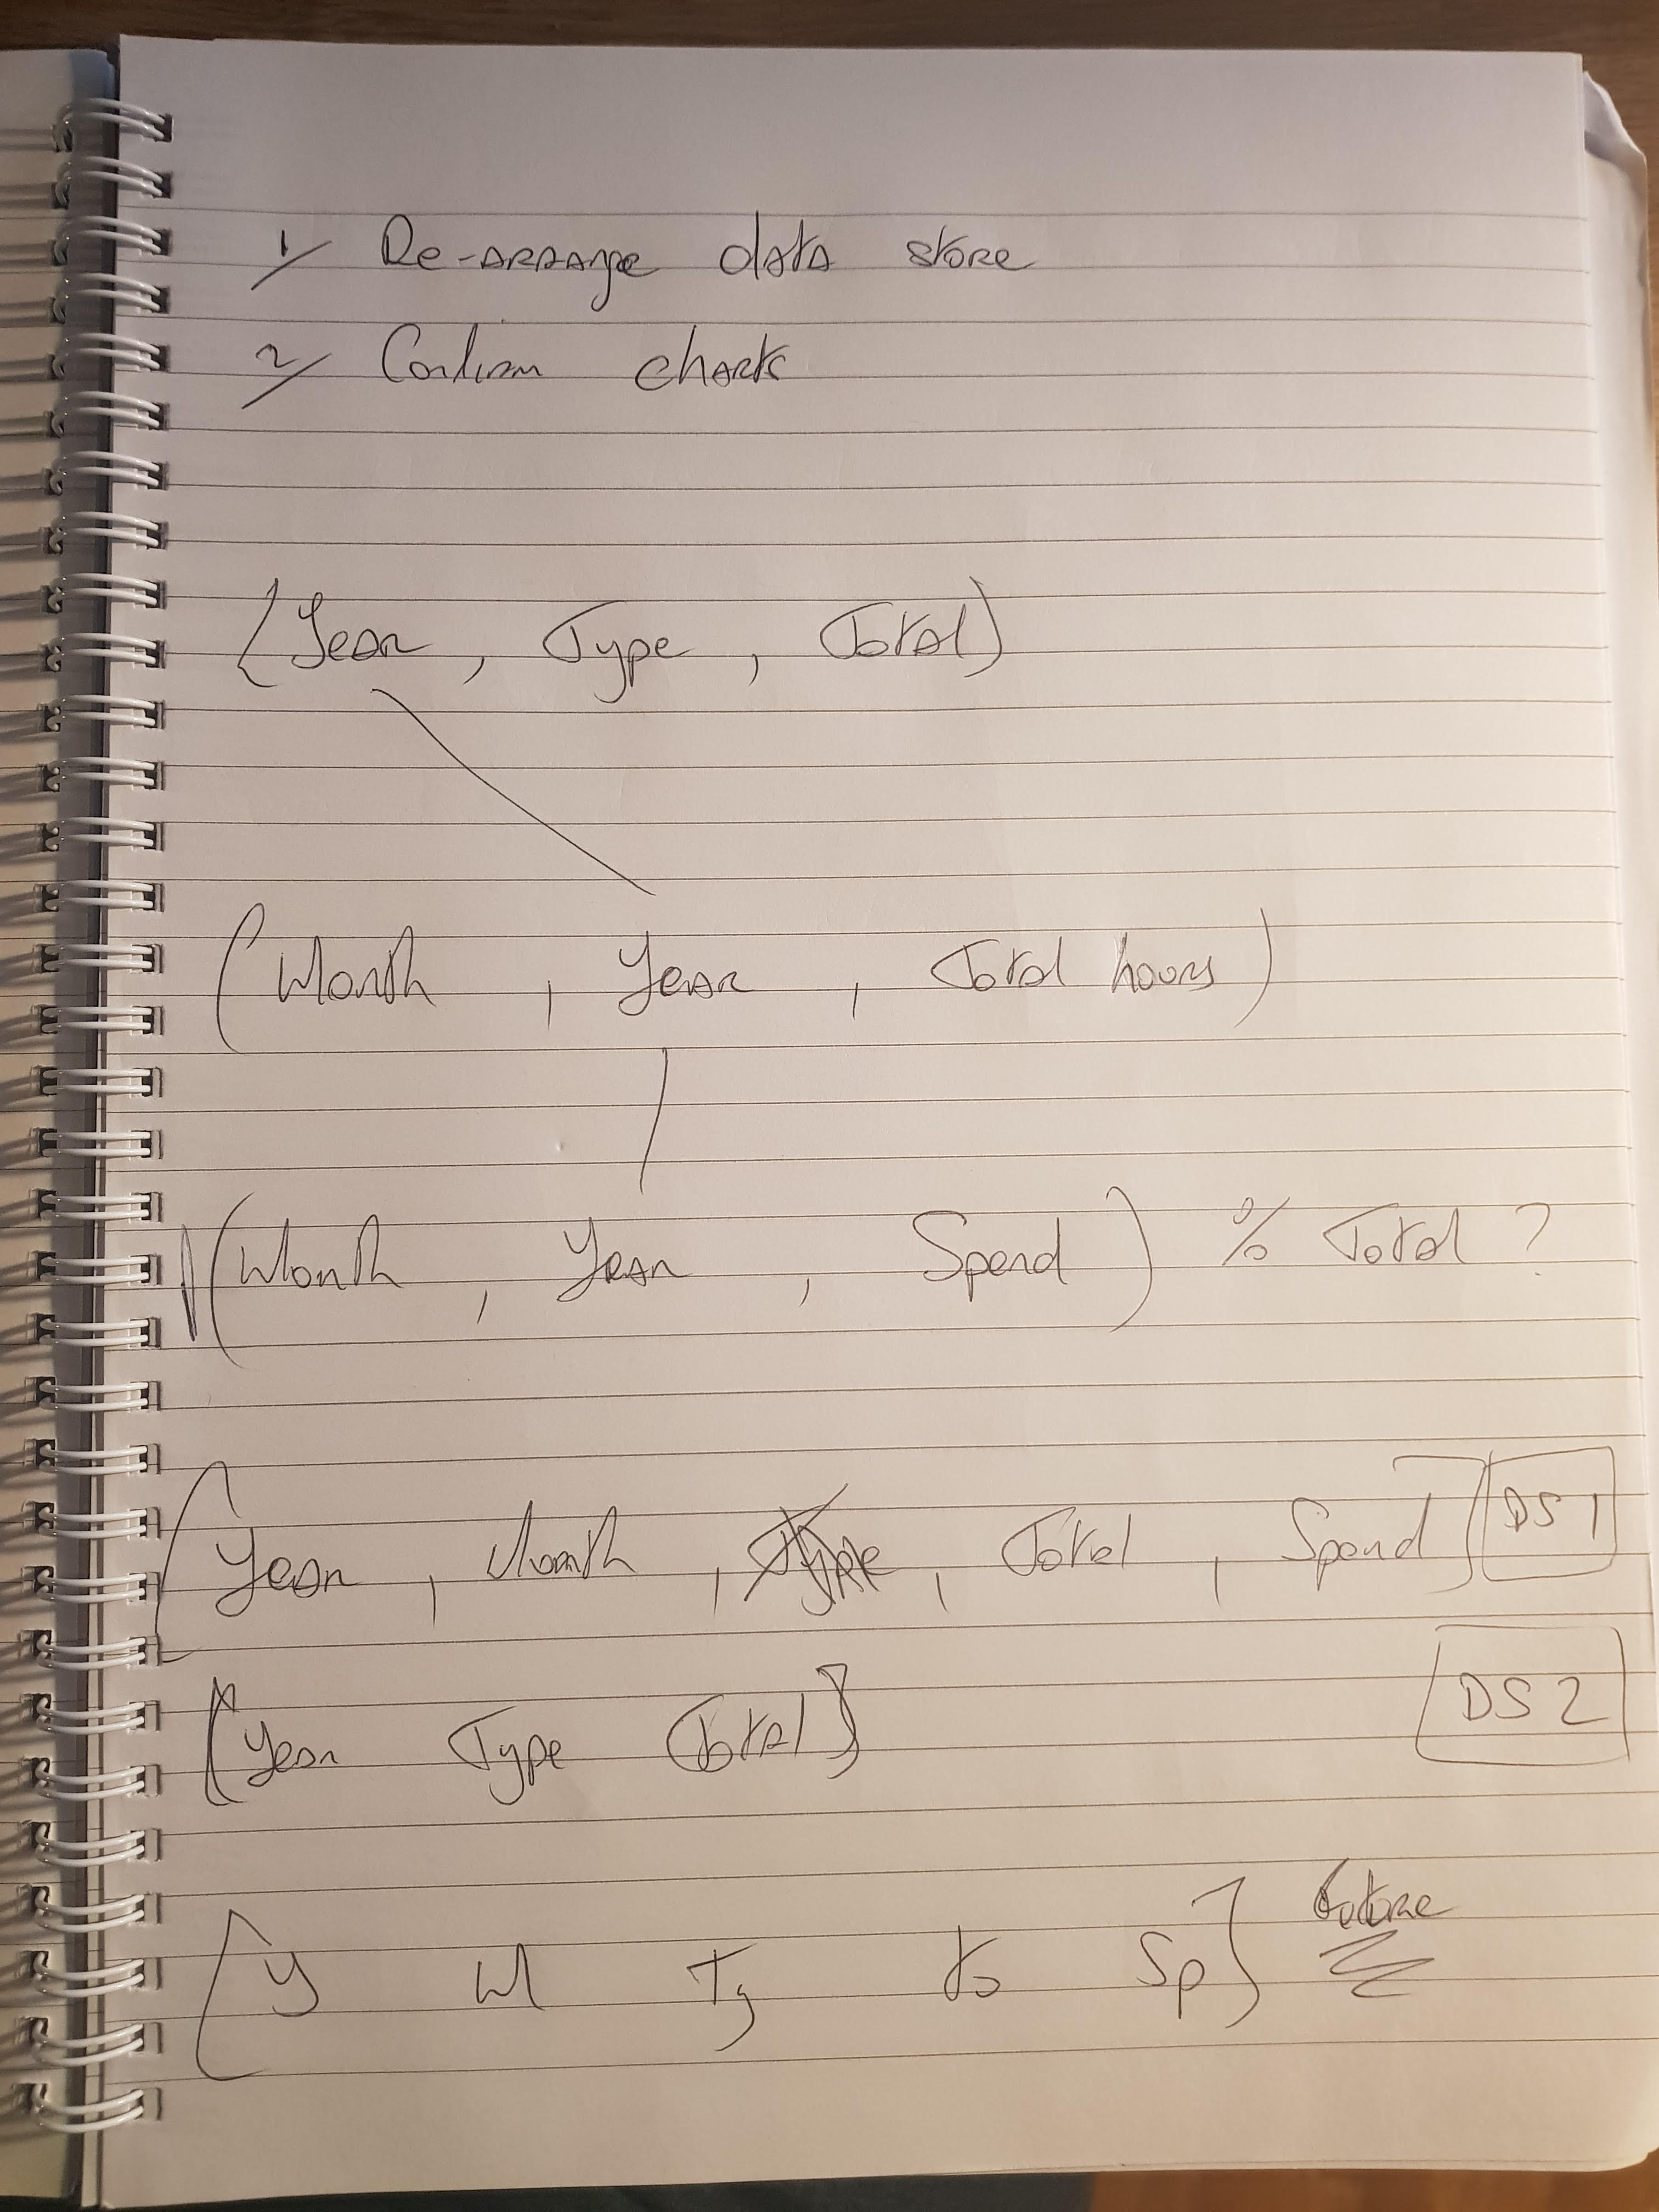 1/ Re-arrange data store
2/ Confirm charts
(Year, Type, Total)
(Month, Year, Total hours)
(Month, Year, Spend) % Total ?
[Year, Month, Type, Total, Spend] DS 1
[Year Type Total] DS 2
[Y M Ty to Sp] future